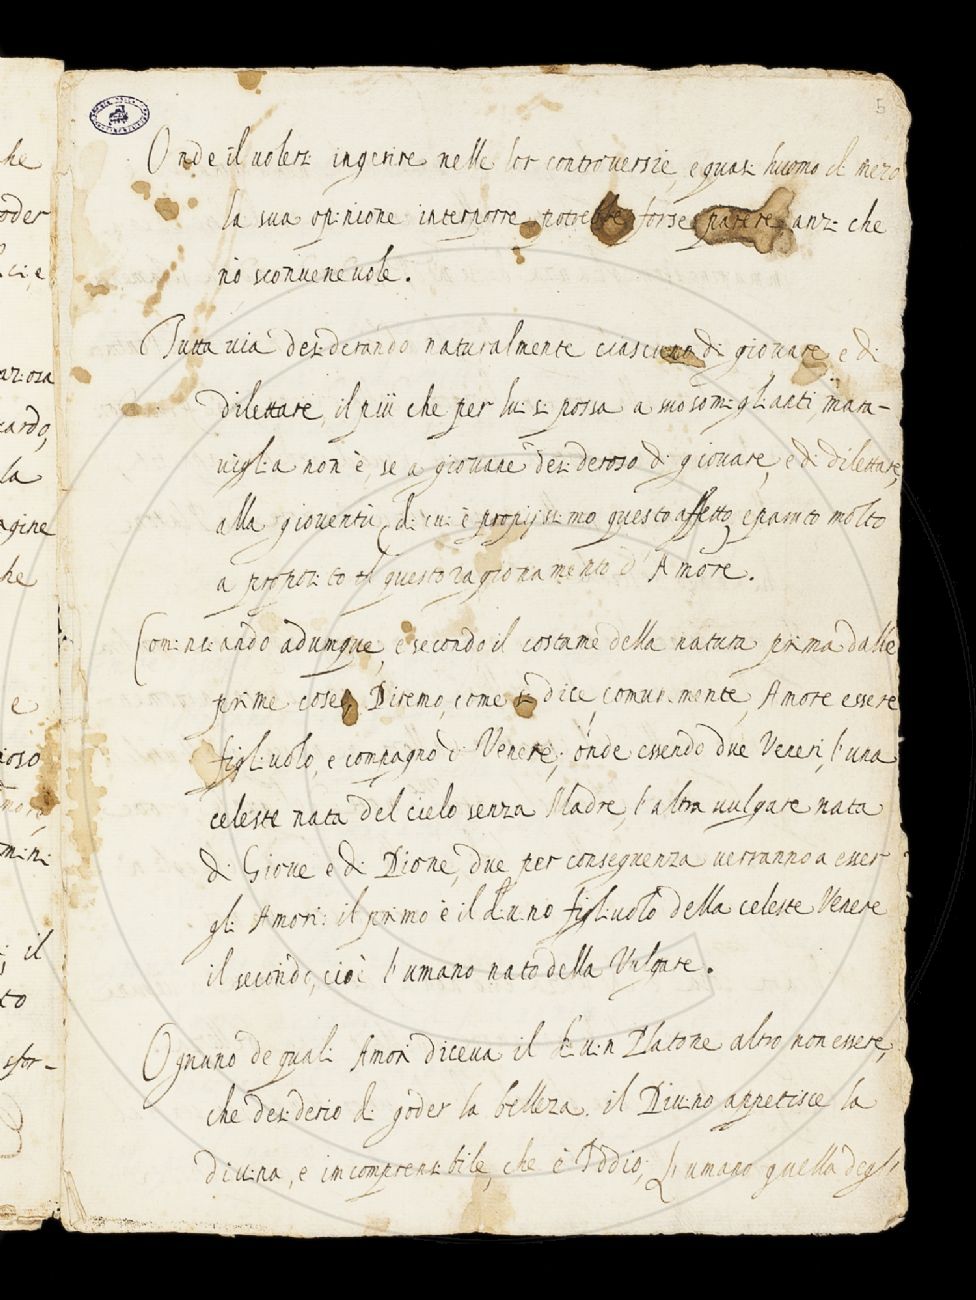 5
Onde il volersi ingerire nelle lor controversie, e quasi huomo di mezo
la sua opinione interporre, potrebbe forse parere anzi che
nò sconvenevole.
Tutta via desiderando naturalmente ciascuno di giovare e di
dilettare, il più che per lui si possa a suo somiglianti, mara-
viglia non è, se a giovane desideroso di giovare, e di dilettare,
alla gioventù, di cui è propijssimo questo affetto, è paruto molto
a proposito questo ragionamento d'Amore.
Cominciando adumque, e secondo il costume della natura prima dalle
prime cose, Diremo, come si dice comunmente, Amore essere
figliuolo, e compagno di Venere; onde essendo due Veneri, l'una
celeste nata del cielo senza Madre, l'altra vulgare nata
di Giove e di Dione, due per conseguenza verranno a esser
gli Amori: il primo è il divino figliuolo della celeste Venere
il secondo, cioè l'umano nato della Vulgare.
Ognuno de quali Amori diceva il divin Platone altro non essere,
che desiderio di goder la bellezza. il Divino appetisce la
divina, e imcomprensibile, che è Iddio; l'umano quella degli
he
oder
la
agine
he
e
il
to